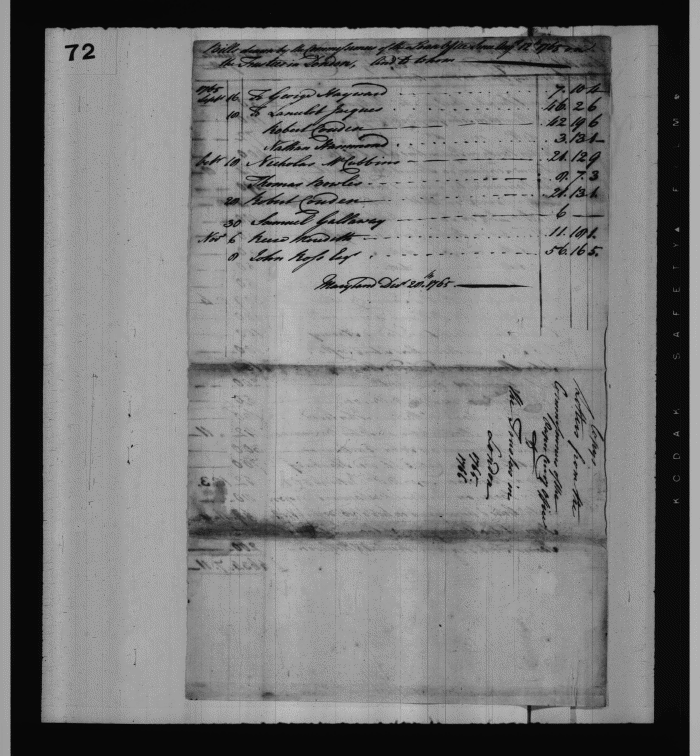 72
Bills drawn by the Commissioners of the Loan Office Since Augt 12th 1765 on
the Trustees in London, And to whom
1765
Sept 16 To George Hayward 7. 10. 4
10 To Lancelot Jacques 46. 2 6
Robert Couden 42 19 6
Nathan Hammond 3. 13. 4
10 Nicholas McCubbins 21. 12 9
Thomas Bowles 9. 7. 3
20 Robert Couden 21. 13. 1
30 Samuel Gallaway 6
Novr 6 11. 10 1.
8 John Ross Esqr 56. 16 5.
Maryland Decr 20th 1765
Copy
Letters from the
Commissioners of the
Paper Curry Office
of
the Trustees in
London
1765.
1765
KODAK SAFETY FILM